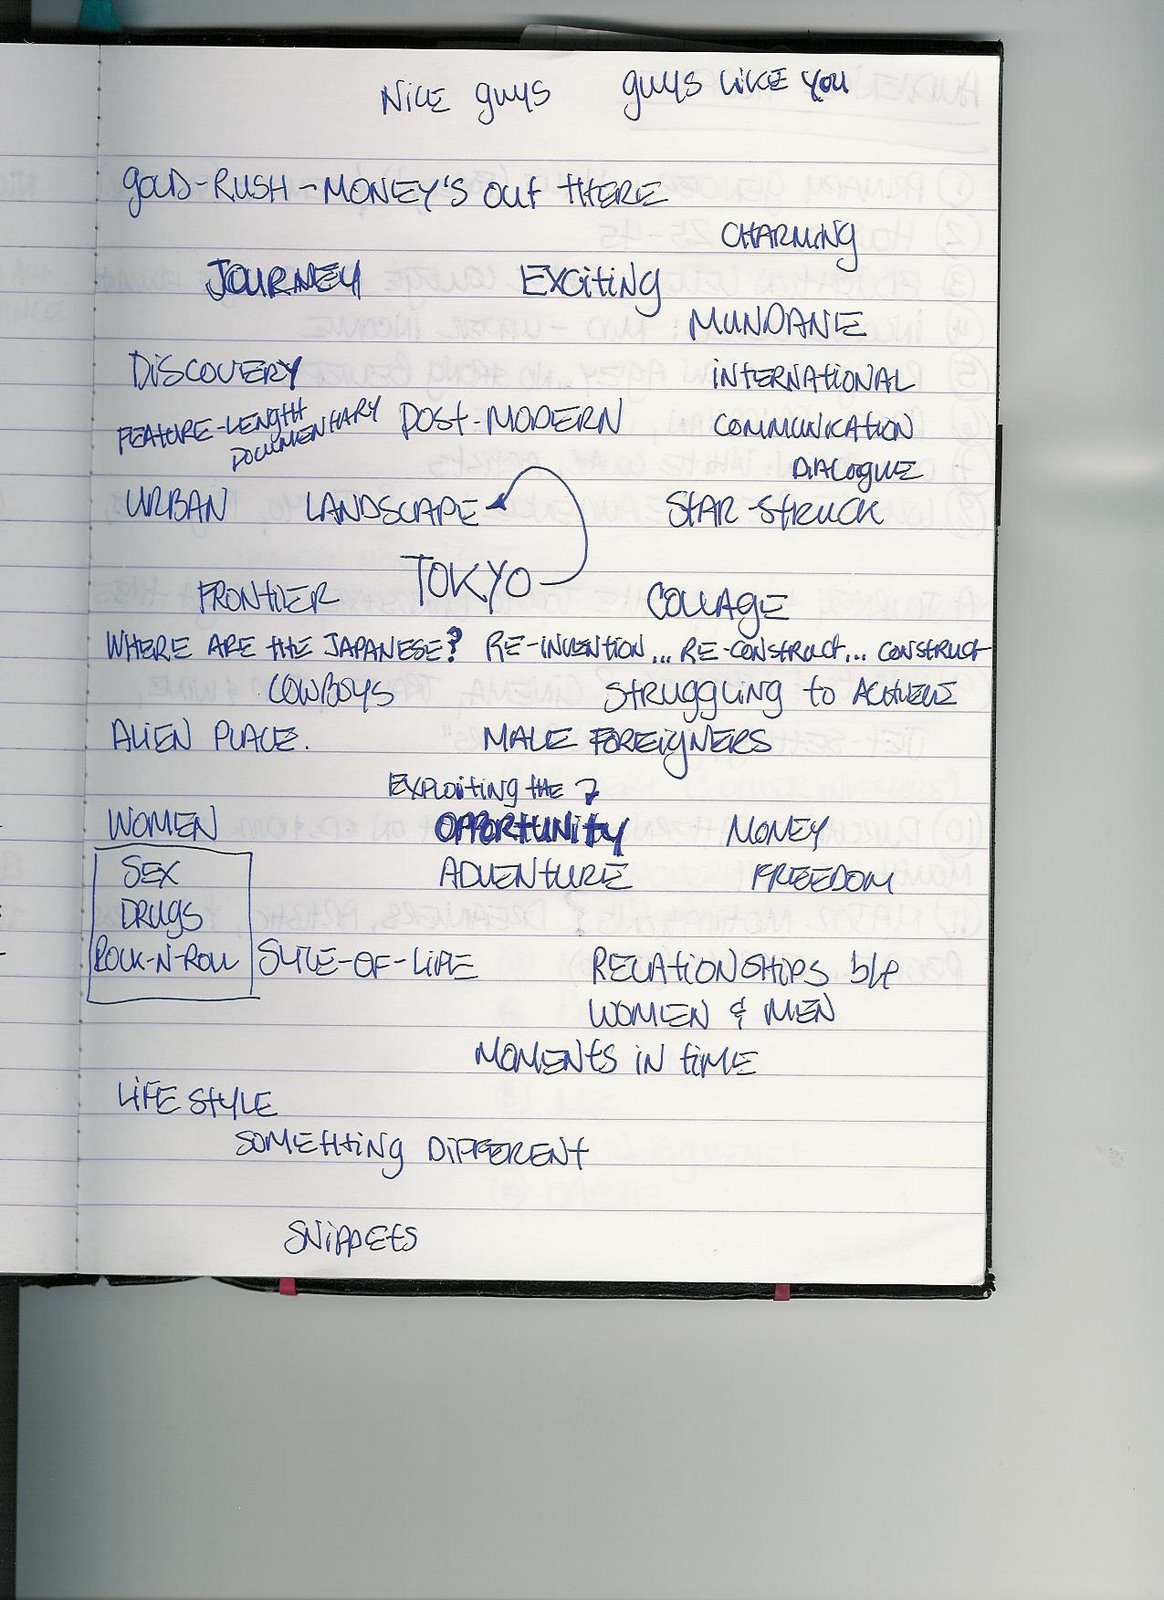 NICE guys guys LIKE YOU
GOLD-RUSH - MONEY'S OUT THERE
CHARMING
JOURNEY EXCITING
MUNDANE
DISCOVERY INTERNATIONAL
FEATURE-LENGTH POST-MODERN COMMUNICATION
DOCUMENTARY DIALOGUE
URBAN LANDSCAPE STAR-STRUCK
TOKYO
FRONTIER COLLAGE
WHERE ARE THE JAPANESE? RE-INVENTION... RE-CONSTRUCT... CONSTRUCT
COWBOYS STRUGGLING to ACHIEVE
ALIEN PLACE. MALE FOREIGNERS
EXPLOITING THE
WOMEN OPPORTUNITY MONEY
SEX ADVENTURE FREEDOM
DRUGS
ROCK-N-ROLL STYLE-OF-LIFE RELATIONSHIPS
WOMEN & MEN
MOMENTS IN TIME
LIFE STYLE
SOMETHING DIFFERENT
SNIPPETS